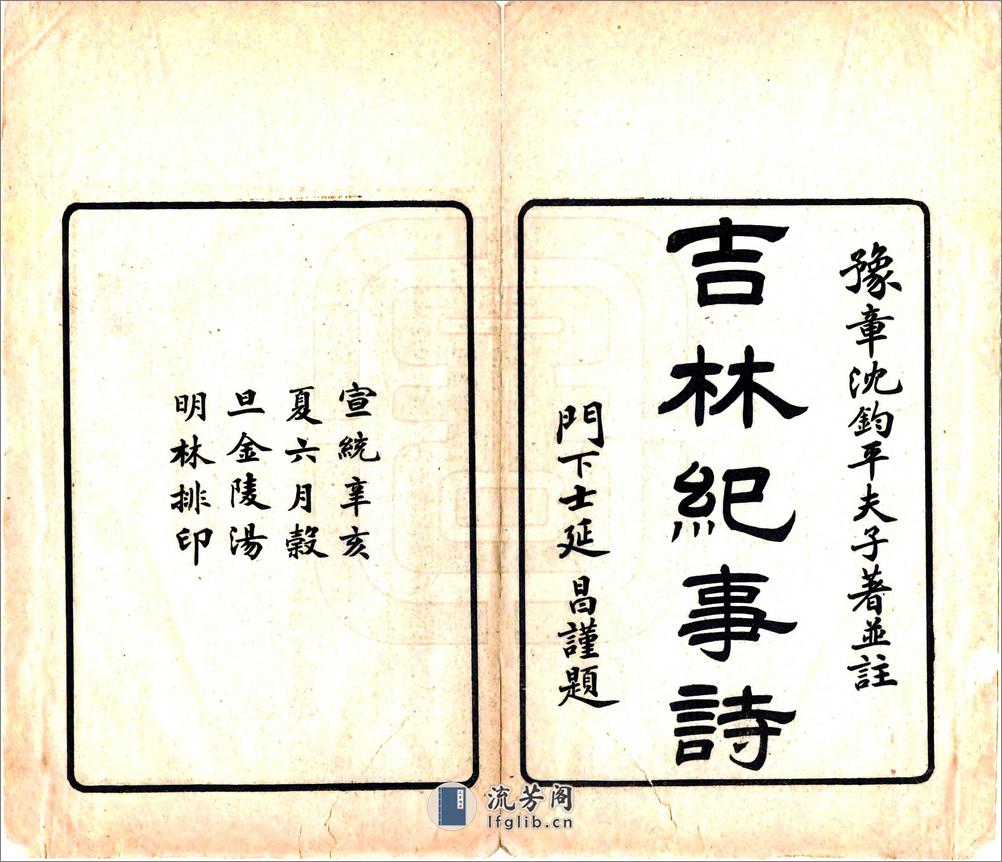 豫章沈鈞平夫子著並註
吉林紀事詩
門下士延昌謹題
宣統辛亥
夏六月穀
旦金陵湯
明林排印
流芳阁
lfglib.cn